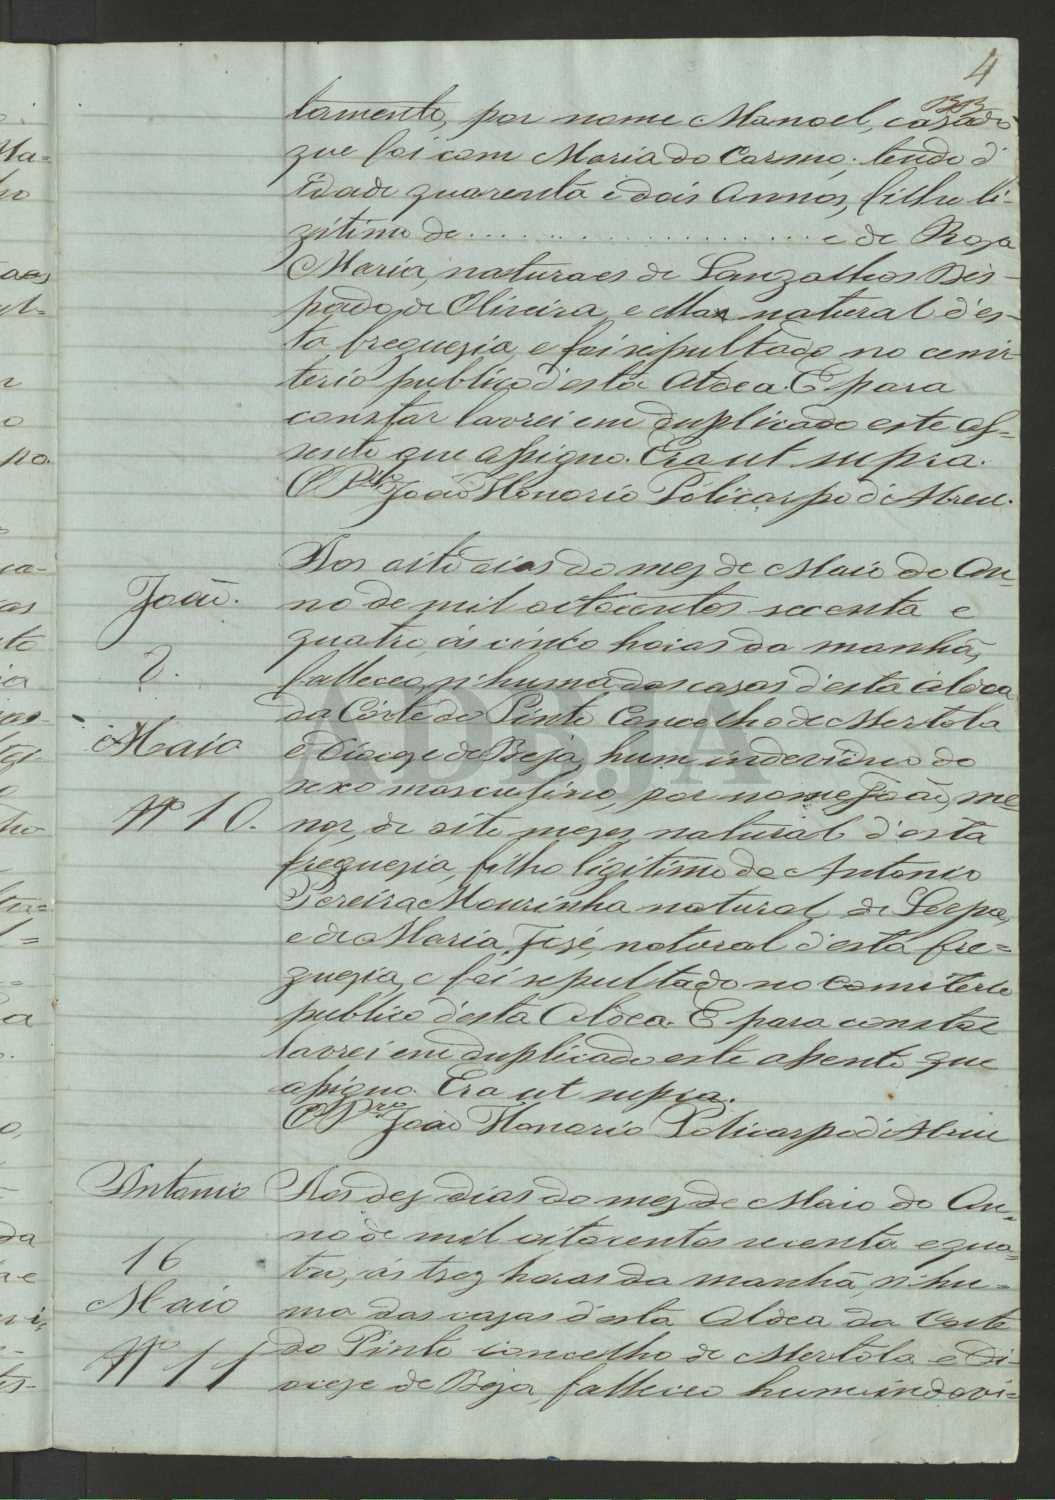 4
tamento, por nome Manoel, casado
que foi com Maria do Carmo, tendo d'
idade quarenta e dois Annos, filho li-
gitimo de . . . . . . . . . . . . . . . . . . e de Rosa
Maria, naturaes de
de Oliveira, e natural d'es-
ta freguezia, e foi sepultado no cemi-
terio publico d'esta Aldea. E para
constar lavrei em duplicado este as-
sento que assigno. Era ut supra.
O João Honorio Policarpo d'Abreu.
João.
8.
Maio
Nº 10.
Aos oito dias do mez de Maio do An-
no de mil oitocentos secenta e
quatro, ás cinco horas da manhã,
falleceo n'huma das casas d'esta Aldea
da Côrte do Pinto Concelho de Mertola
e Diocese de Beja, hum individuo do
sexo masculino, por nome João, me-
nor, de oito mezes, natural d'esta
freguezia, filho ligitimo de Antonio
Pereira Mourinha natural de Serpa,
e de Maria José, natural d'esta fre=
guezia, e foi sepultado no Cemiterio
publico d'esta Aldea. E para constar
lavrei em duplicado este assento que
assigno. Era ut supra.
O Pro João Honorio Policarpo d'Abreu
Antonio
16
Maio
Nº 11
Aos dez dias do mez de Maio do An-
no de mil oitocentos secenta e qua=
tro, ás trez horas da manhã, n'hu-
ma das casas d'esta Aldea da Corte
do Pinto concelho de Mertola e Di-
ocese de Beja, falleceo hum indevi-
ADBJA